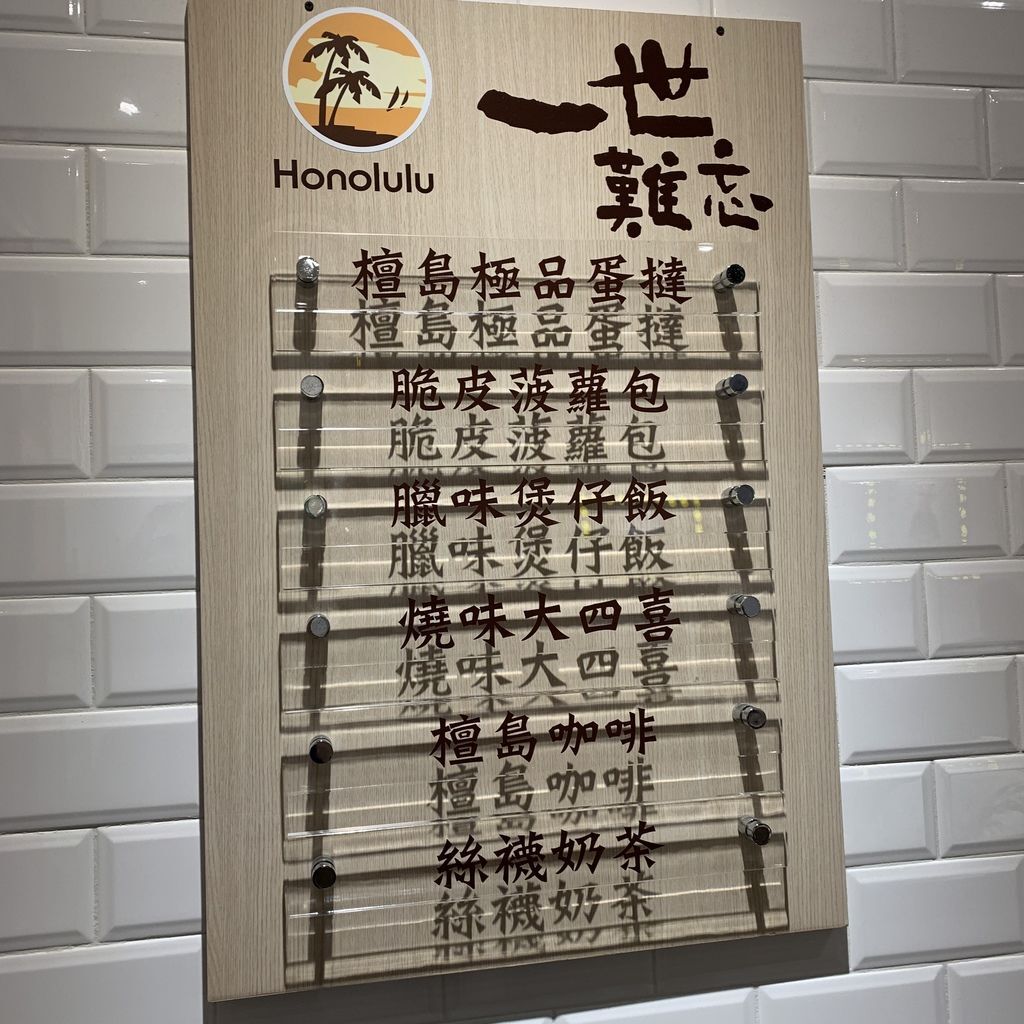 Honolulu
一世
難忘
檀島極品蛋撻
脆皮菠蘿包
臘味煲仔飯
燒味大四喜
檀島咖啡
絲襪奶茶